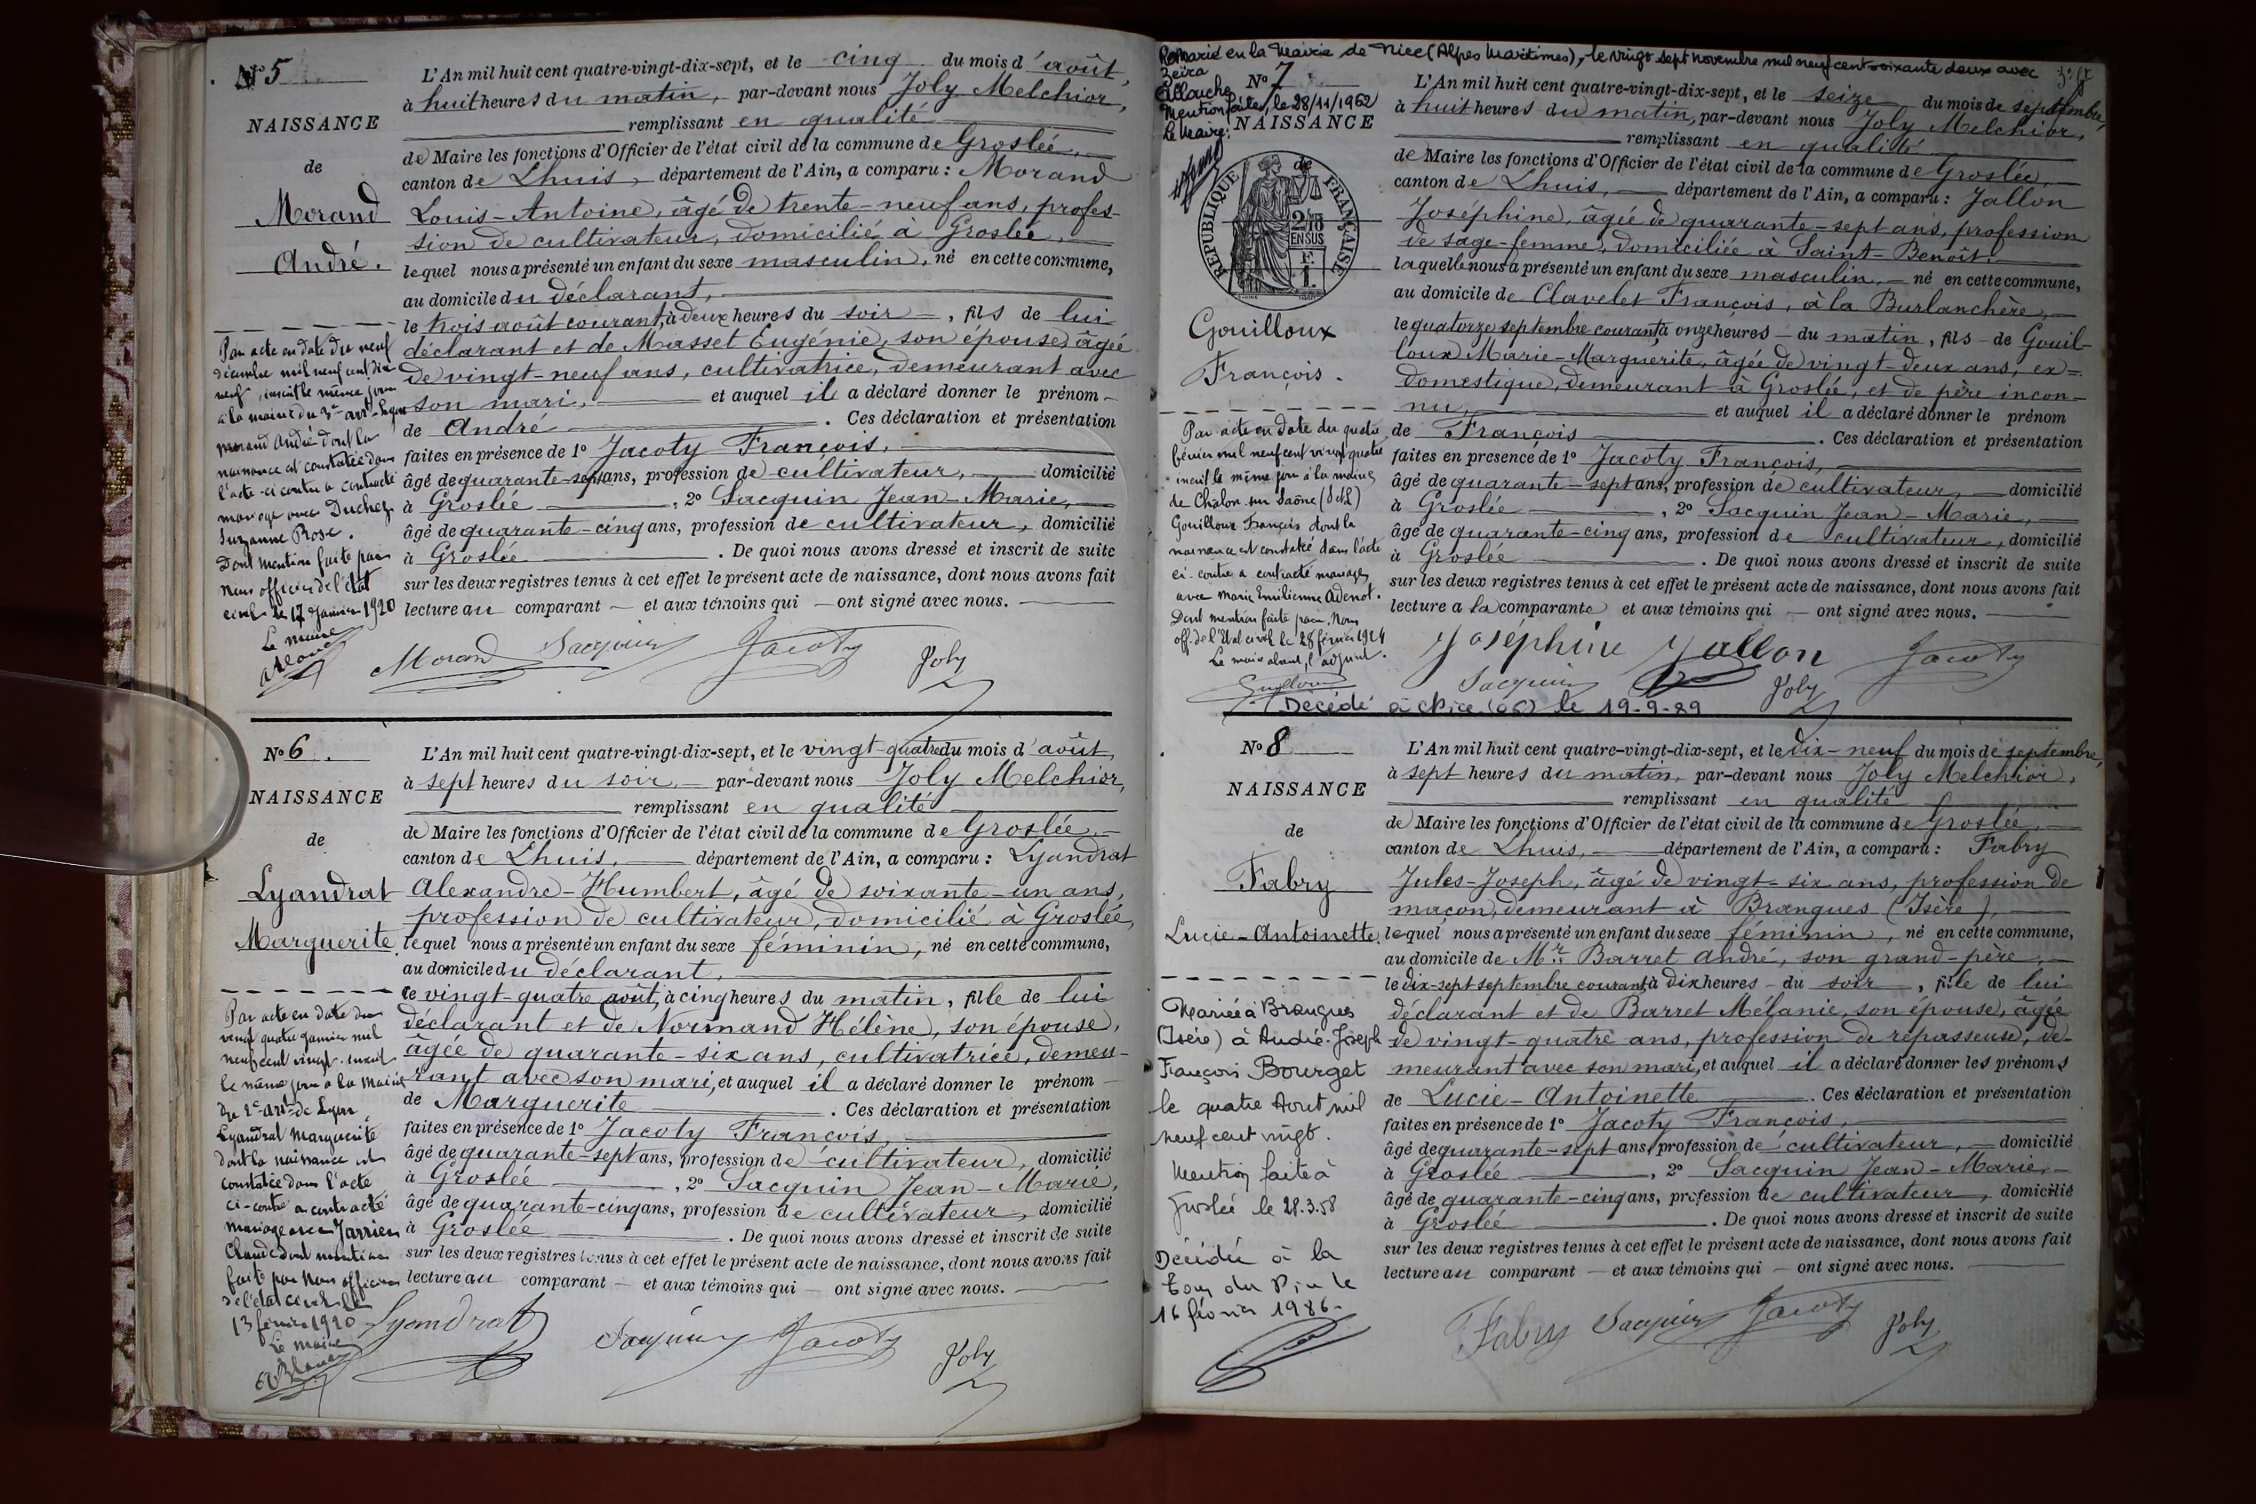 N° 5
NAISSANCE
de
Morand
André.
L'An mil huit cent quatre-vingt-dix-sept, et le cinq du mois d'août,
à huit heures du matin, par-devant nous Joly Melchior,
remplissant en qualité
de Maire les fonctions d'Officier de l'état civil de la commune de Groslée,
canton de Lhuis, département de l'Ain, a comparu : Morand
Louis-Antoine, âgé de trente-neuf ans, profes-
sion de cultivateur, domicilié à Groslée,
lequel nous a présenté un enfant du sexe masculin, né en cette commune,
au domicile du déclarant,
le trois août courant, à deux heures du soir, fils de lui
déclarant et de Masset Eugénie, son épouse, âgée
de vingt-neuf ans, cultivatrice, demeurant avec
son mari, et auquel il a déclaré donner le prénom
de André. Ces déclaration et présentation
faites en présence de 1° Jacoty François,
âgé de quarante-sept ans, profession de cultivateur, domicilié
à Groslée, 2° Sacquin Jean-Marie,
âgé de quarante-cinq ans, profession de cultivateur, domicilié
à Groslée. De quoi nous avons dressé et inscrit de suite
sur les deux registres tenus à cet effet le présent acte de naissance, dont nous avons fait
lecture au comparant et aux témoins qui ont signé avec nous.
Par acte en date du neuf
décembre mil neuf cent dix
neuf, inscrit le même jour
à la mairie du 3e arrt
Morand André dont la
naissance est constatée dans
l'acte ci-contre a contracté
mariage avec Duchez
Suzanne Rose.
Dont mention faite par
Nous officier de l'état
civil le 17 Janvier 1920
Le maire
Morand Sacquin Jacoty Joly
N° 6.
NAISSANCE
de
Lyandrat
Marguerite.
L'An mil huit cent quatre-vingt-dix-sept, et le vingt-quatre du mois d'août,
à sept heures du soir, par-devant nous Joly Melchior,
remplissant en qualité
de Maire les fonctions d'Officier de l'état civil de la commune de Groslée,
canton de Lhuis, département de l'Ain, a comparu : Lyandrat
Alexandre-Humbert, âgé de soixante-un ans,
profession de cultivateur, domicilié à Groslée,
lequel nous a présenté un enfant du sexe féminin, né en cette commune,
au domicile du déclarant,
le vingt-quatre août, à cinq heures du matin, fille de lui
déclarant et de Normand Hélène, son épouse,
âgée de quarante-six ans, cultivatrice, demeu-
rant avec son mari, et auquel il a déclaré donner le prénom
de Marguerite. Ces déclaration et présentation
faites en présence de 1° Jacoty François,
âgé de quarante-sept ans, profession de cultivateur, domicilié
à Groslée, 2° Sacquin Jean-Marie,
âgé de quarante-cinq ans, profession de cultivateur, domicilié
à Groslée. De quoi nous avons dressé et inscrit de suite
sur les deux registres tenus à cet effet le présent acte de naissance, dont nous avons fait
lecture au comparant et aux témoins qui ont signé avec nous.
Par acte en date du
vingt quatre janvier mil
neuf cent vingt, inscrit
le même jour à la Mairie
du 2e arrt de Lyon,
Lyandrat Marguerite
dont la naissance est
constatée dans l'acte
ci-contre a contracté
mariage avec Jarrien
Claude dont mention
faite par Nous officier
de l'état civil le
13 février 1920
Le maire
Lyandrat Sacquin Jacoty Joly
Remarié en la Mairie de Nice (Alpes Maritimes), le vingt sept novembre mil neuf cent soixante deux avec
Zeïra
Allouche
Mention faite le 28/11/1962
Le Maire
N° 7
NAISSANCE
de
RÉPUBLIQUE FRANÇAISE
2/10
EN SUS
F.
1.
Gouilloux
François.
L'An mil huit cent quatre-vingt-dix-sept, et le seize du mois de septembre,
à huit heures du matin, par-devant nous Joly Melchior,
remplissant en qualité
de Maire les fonctions d'Officier de l'état civil de la commune de Groslée,
canton de Lhuis, département de l'Ain, a comparu : Jallon
Joséphine, âgée de quarante-sept ans, profession
de sage-femme, domiciliée à Saint-Benoît,
laquelle nous a présenté un enfant du sexe masculin, né en cette commune,
au domicile de Clavelet François, à la Burlanchère,
le quatorze septembre courant, à onze heures du matin, fils de Gouil-
loux Marie-Marguerite, âgée de vingt-deux ans, ex-
domestique, demeurant à Groslée, et de père incon-
nu, et auquel il a déclaré donner le prénom
de François. Ces déclaration et présentation
faites en présence de 1° Jacoty François,
âgé de quarante-sept ans, profession de cultivateur, domicilié
à Groslée, 2° Sacquin Jean-Marie,
âgé de quarante-cinq ans, profession de cultivateur, domicilié
à Groslée. De quoi nous avons dressé et inscrit de suite
sur les deux registres tenus à cet effet le présent acte de naissance, dont nous avons fait
lecture à la comparante et aux témoins qui ont signé avec nous.
Par acte en date du quatre
février mil neuf cent vingt quatre
inscrit le même jour à la mairie
de Chalon sur Saône (S et L)
Gouilloux François dont la
naissance est constatée dans l'acte
ci-contre a contracté mariage
avec Marie Emilienne Adenot.
Dont mention faite par Nous
off. de l'Etat civil le 28 février 1924
Le maire absent, l'adjoint.
Joséphine Jallon Jacoty
Sacquin Joly
Décédé à Nice (06) le 19-9-89
N° 8
NAISSANCE
de
Fabry
Lucie-Antoinette.
L'An mil huit cent quatre-vingt-dix-sept, et le dix-neuf du mois de septembre,
à sept heures du matin, par-devant nous Joly Melchior,
remplissant en qualité
de Maire les fonctions d'Officier de l'état civil de la commune de Groslée,
canton de Lhuis, département de l'Ain, a comparu : Fabry
Jules-Joseph, âgé de vingt-six ans, profession de
maçon, demeurant à Brangues (Isère),
lequel nous a présenté un enfant du sexe féminin, né en cette commune,
au domicile de Mr Barret André, son grand-père,
le dix-sept septembre courant, à dix heures du soir, fille de lui
déclarant et de Barret Mélanie, son épouse, âgée
de vingt-quatre ans, profession de repasseuse, de-
meurant avec son mari, et auquel il a déclaré donner les prénoms
de Lucie-Antoinette. Ces déclaration et présentation
faites en présence de 1° Jacoty François,
âgé de quarante-sept ans, profession de cultivateur, domicilié
à Groslée, 2° Sacquin Jean-Marie,
âgé de quarante-cinq ans, profession de cultivateur, domicilié
à Groslée. De quoi nous avons dressé et inscrit de suite
sur les deux registres tenus à cet effet le présent acte de naissance, dont nous avons fait
lecture au comparant et aux témoins qui ont signé avec nous.
Mariée à Brangues
(Isère) à André-Joseph
François Bourget
le quatre Aout mil
neuf cent vingt.
Mention faite à
Groslée le 28.3.58
Décédée à la
Tour du Pin le
16 février 1986.
Fabry Sacquin Jacoty Joly